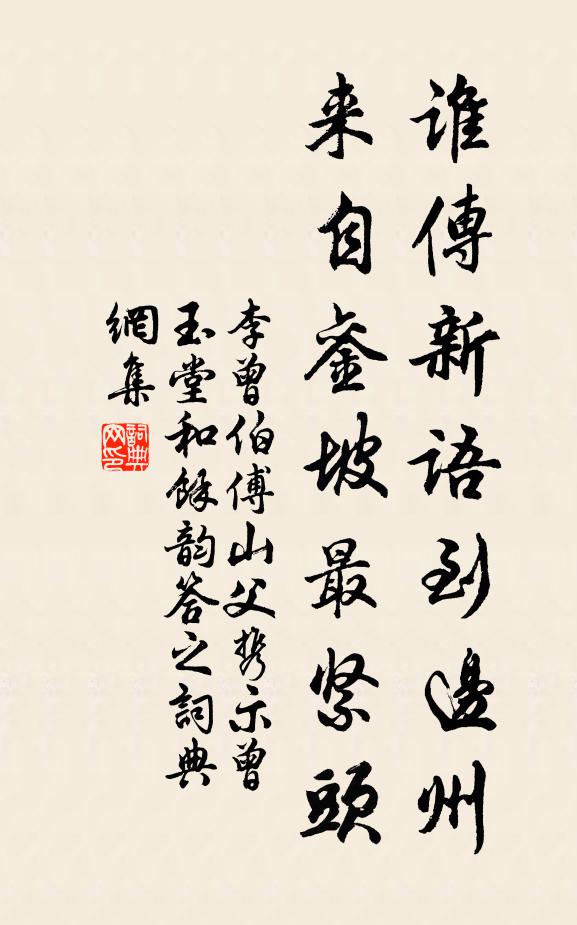 誰傳新語到邊州
来自鑾坡最紧頭
李曾伯傅山父携示曾
玉堂和餘韵答之詞典
網集
詞典
网印